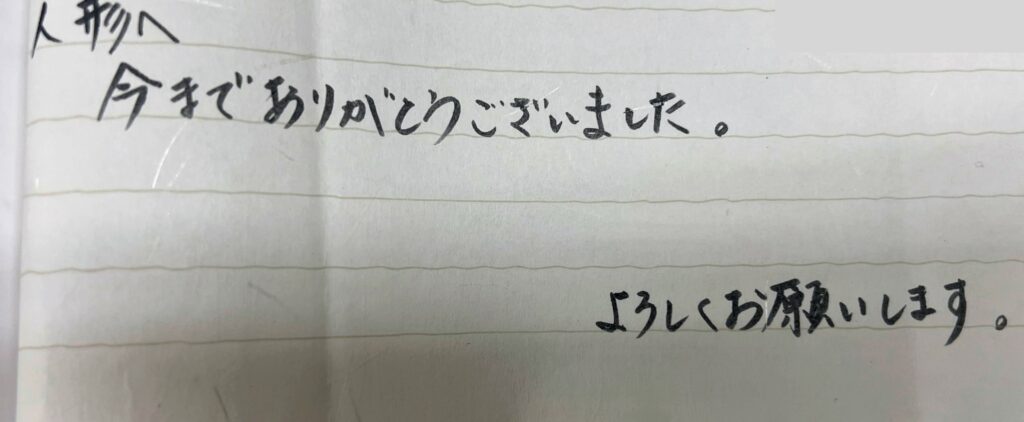 人形へ
今までありがとうございました。
よろしくお願いします。